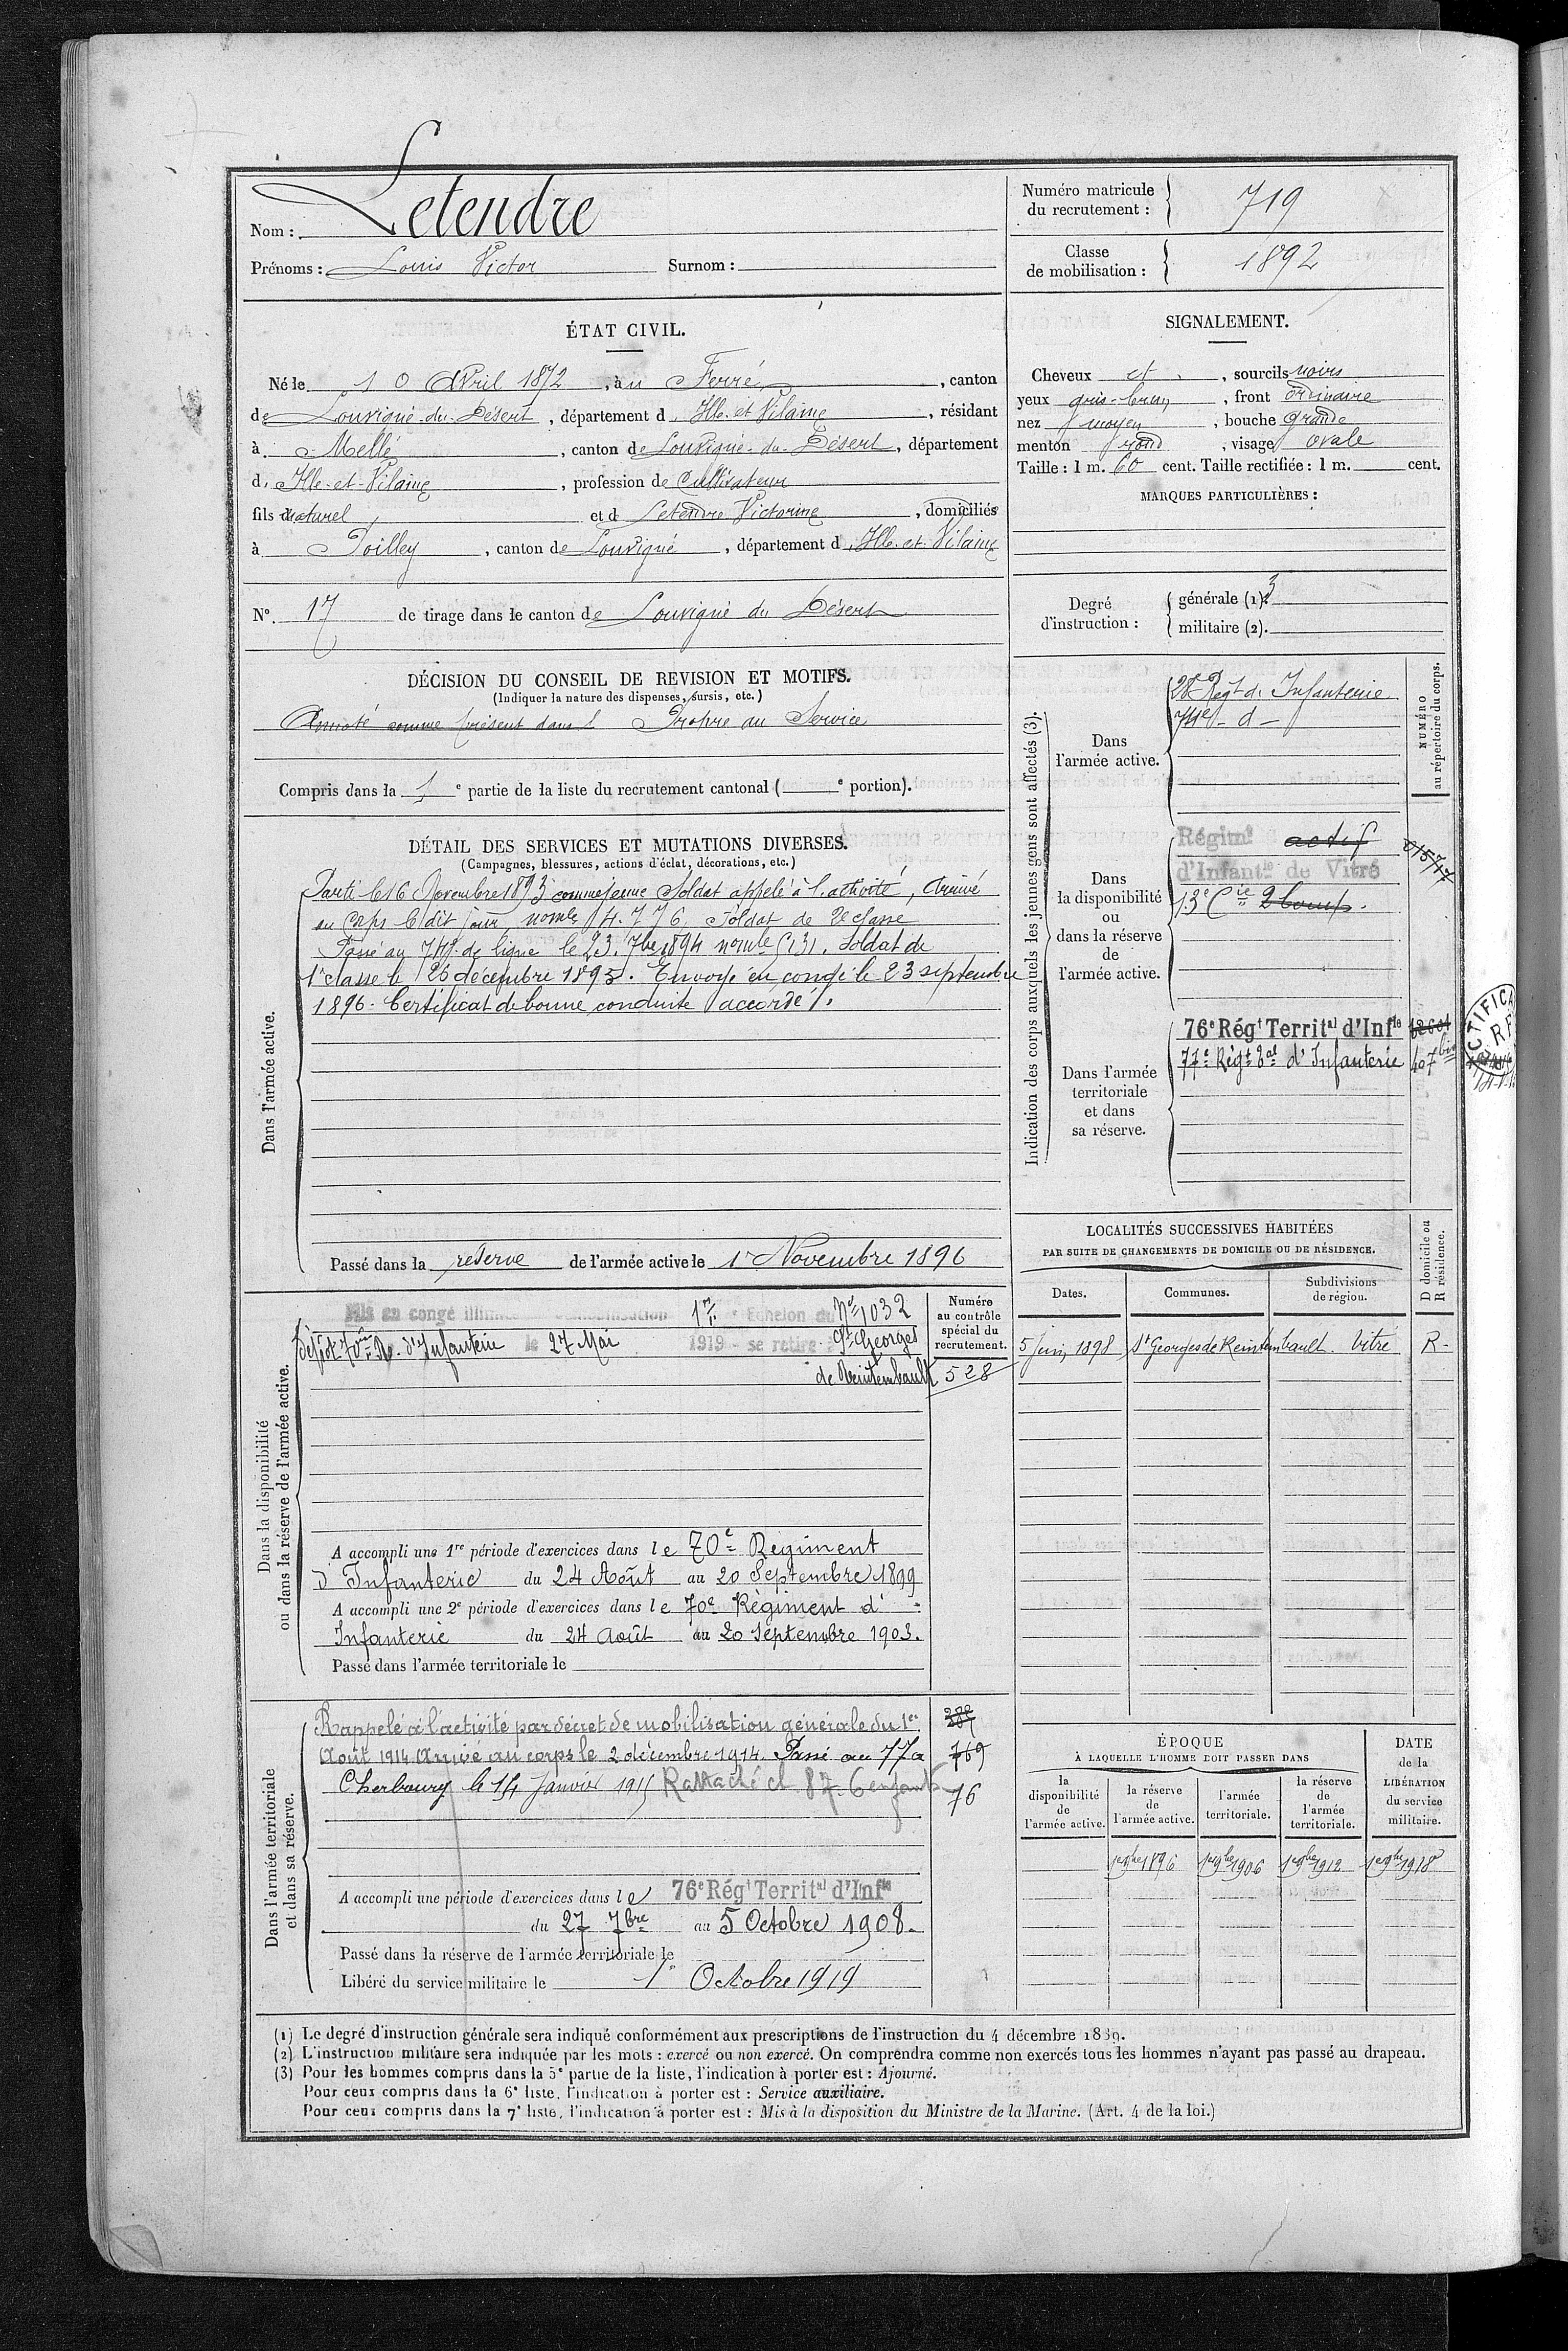 Nom : Letendre
Prénoms : Louis Victor Surnom :
Numéro matricule du recrutement : 719
Classe de mobilisation : 1892
ÉTAT CIVIL.
Né le 10 Avril 1872, à u Ferré, canton
de Louvigné-du-Désert, département d Ille-et-Vilaine, résidant
à Mellé, canton de Louvigné-du-Désert, département
d Ille-et-Vilaine, profession de Cultivateur
fils naturel et d Letendre Victorine, domiciliés
à Poilley, canton de Louvigné, département d Ille-et-Vilaine
N° 17 de tirage dans le canton de Louvigné du Désert
DÉCISION DU CONSEIL DE REVISION ET MOTIFS.
(Indiquer la nature des dispenses, sursis, etc.)
Annoté comme présent dans l Propre au Service
Compris dans la 1e partie de la liste du recrutement cantonal ( e portion).
DÉTAIL DES SERVICES ET MUTATIONS DIVERSES.
(Campagnes, blessures, actions d'éclat, décorations, etc.)
Dans l'armée active.
Parti le 16 Novembre 1893 comme jeune Soldat appelé à l'activité, Arrivé
au Corps le dit jour 4.776. Soldat de 2e classe
Passé au 74e de ligne le 23. 7bre 1894 5131. Soldat de
1e classe le 26 décembre 1895. Envoyé en congé le 23 septembre
1896. Certificat de bonne conduite accordé.
Passé dans la réserve de l'armée active le 1er Novembre 1896
Dans la disponibilité
ou dans la réserve de l'armée active.
Mis en congé illimité 1er Echelon du N° 1032
Dépôt 70e R. d'Infanterie le 27 Mai 1919 - se retire St Georges
de Reintembault
Numéro au contrôle spécial du recrutement.
528
A accompli une 1re période d'exercices dans le 70e Régiment
d'Infanterie du 24 Août au 20 Septembre 1899
A accompli une 2e période d'exercices dans le 70e Régiment d'
Infanterie du 24 Août au 20 Septembre 1903.
Passé dans l'armée territoriale le
Dans l'armée territoriale
et dans sa réserve.
Rappelé à l'activité par décret de mobilisation générale du 1er
Août 1914 Arrivé au corps le 2 décembre 1914. Passé au 77e à
Cherbourg le 14 Janvier 1915 Rattaché cl 87. 6 enfants
769
76
A accompli une période d'exercices dans le 76e Régt Territal d'Infie
du 27 7bre au 5 Octobre 1908.
Passé dans la réserve de l'armée territoriale le
Libéré du service militaire le 1er Octobre 1919
SIGNALEMENT.
Cheveux et, sourcils noirs
yeux gris-brun, front ordinaire
nez moyen, bouche grande
menton rond, visage ovale
Taille : 1 m. 60 cent. Taille rectifiée : 1 m. cent.
MARQUES PARTICULIÈRES :
Degré d'instruction : générale (1). 3
militaire (2).
Indication des corps auxquels les jeunes gens sont affectés (3).
NUMÉRO au répertoire du corps.
Dans l'armée active.
28e Regt d'Infanterie
74e - d -
Dans la disponibilité ou dans la réserve de l'armée active.
Régimt actif
d'Infantie de Vitré
13e Cie
Dans l'armée territoriale et dans sa réserve.
76e Régt Territal d'Infie
77e Régt tal d'Infanterie 407 bis
LOCALITÉS SUCCESSIVES HABITÉES
PAR SUITE DE CHANGEMENTS DE DOMICILE OU DE RÉSIDENCE.
D domicile ou R résidence.
Dates. Communes. Subdivisions de région.
5 Juin 1898 St Georges de Reintembault Vitré R.
ÉPOQUE
À LAQUELLE L'HOMME DOIT PASSER DANS
DATE de la LIBÉRATION du service militaire.
la disponibilité de l'armée active. la réserve de l'armée active. l'armée territoriale. la réserve de l'armée territoriale.
1er 9bre 1896 1er 9bre 1906 1er 9bre 1912 1er 9bre 1918
(1) Le degré d'instruction générale sera indiqué conformément aux prescriptions de l'instruction du 4 décembre 1889.
(2) L'instruction militaire sera indiquée par les mots : exercé ou non exercé. On comprendra comme non exercés tous les hommes n'ayant pas passé au drapeau.
(3) Pour les hommes compris dans la 5e partie de la liste, l'indication à porter est : Ajourné.
Pour ceux compris dans la 6e liste, l'indication à porter est : Service auxiliaire.
Pour ceux compris dans la 7e liste, l'indication à porter est : Mis à la disposition du Ministre de la Marine. (Art. 4 de la loi.)